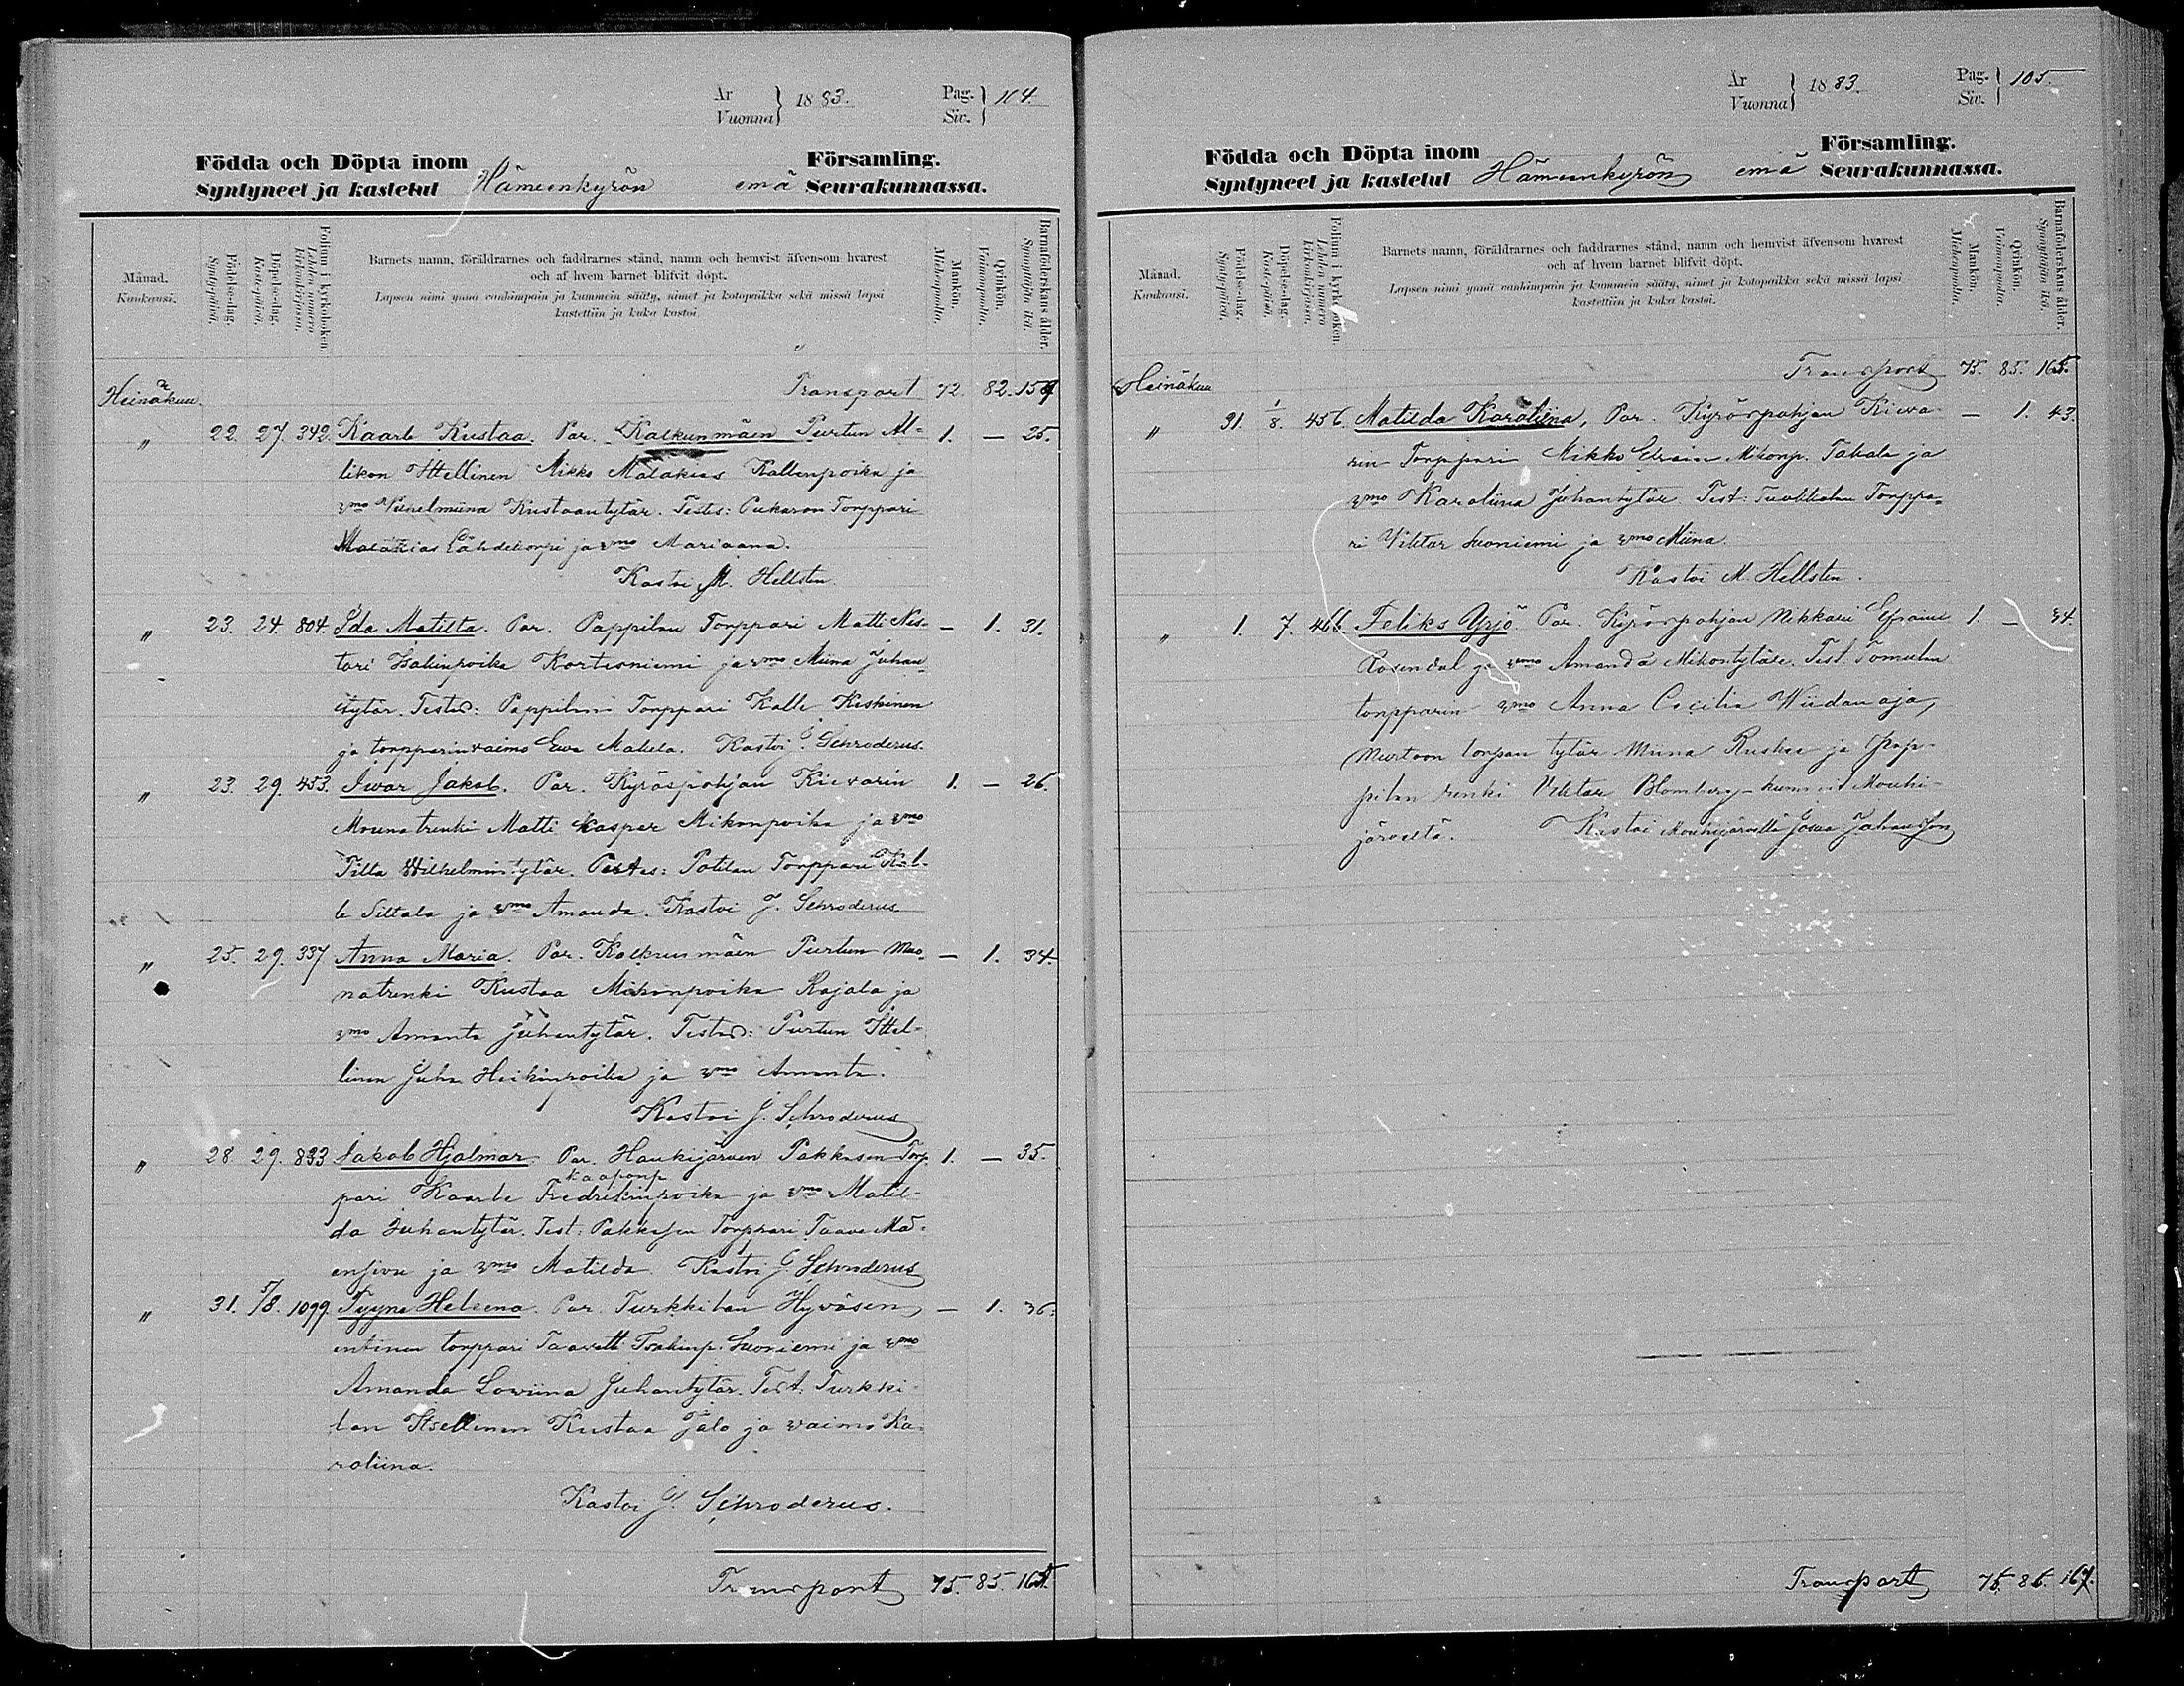 År Vuonna } 1883. Pag. Siv. } 104.
Födda och Döpta inom Församling.
Syntyneet ja kastetut Hämeenkyrön emä Seurakunnassa.
Månad. Kuukausi.
Födelse-dag. Syntypäivä.
Döpelse-dag. Kaste-päivä.
Folium i kyrkoboken. Lehden numero kirkonkirjassa.
Barnets namn, föräldrarnes och faddrarnes stånd, namn och hemvist äfvensom hvarest
och af hvem barnet blifvit döpt.
Lapsen nimi ynnä vanhimpain ja kummein sääty, nimet ja kotopaikka sekä missä lapsi
kastettiin ja kuka kastoi.
Mankön. Miehenpuolia.
Qvinkön. Vaimonpuolia.
Barnaföderskans ålder. Synnyttäjän ikä.
Heinäkuu. Transport 72. 82. 159
" 22. 27. 342. Kaarle Kustaa. Par. Kalkunmäen Purtun Al- 1. — 25.
likon Ittellinen Mikko Malakias Kallenpoika ja
vmo Vilhelmiina Kustaantytär. Testes: Pukaron Torppari
Malakias Lähdekorpi ja vmo Mariaana.
Kastoi M. Hellsten.
" 23. 24. 804. Ida Matilta. Par. Pappilan Torppari Matti Nes- — 1. 31.
tori Isakinpoika Kortesniemi ja vmo Miina Juhan
tytär. Testes: Pappilan Torppari Kalle Keskinen
ja torpparinvaimo Eva Matiela. Kastoi J. Schroderus.
" 23. 29. 453. Iivar Jakob. Par. Kyröspohjan Kievarin 1. — 26.
Mouna trenki Matti Kasper Mikonpoika ja vmo
Tilta Wilhelmintytär. Testes: Potilan Torppari Kal-
le Siltala ja vmo Amanda. Kastoi J. Schroderus
" 25. 29. 337 Anna Maria. Par. Kalkunmäen Purtun Muo- — 1. 34.
natrenki Kustaa Mikonpoika Rajala ja
vmo Amanta Juhantytär. Testes: Purtun Ittel-
linen Juha Heikinpoika ja vmo Amanta.
Kastoi J. Schroderus
" 28. 29. 833 Jakob Hjalmar. Par. Haukijärven Pakkasen Torp- 1. — 35.
Kaaponp
pari Kaarle Fredrikinpoika ja vmo Matil-
da Juhantytär. Test: Pakkasen Torppari Taave Mä-
ensivu ja vmo Matilda. Kastoi J. Schroderus
" 31. 5/8. 1099. Tyyne Heleena. Par. Turkkilan Hyväsen — 1. 36.
entinen torppari Taavetti Isakinp. Suoniemi ja vmo
Amanda Loviina Juhantytär. Test. Turkki-
lan Itsellinen Kustaa Jalo ja vaimo Ka-
roliina.
Kastoi J. Schroderus.
Transport 75. 85. 165.
År Vuonna } 1883. Pag. Siv. } 105.
Födda och Döpta inom Församling.
Syntyneet ja kastetut Hämeenkyrön emä Seurakunnassa.
Månad. Kuukausi.
Födelse-dag. Syntypäivä.
Döpelse-dag. Kaste-päivä.
Folium i kyrkoboken. Lehden numero kirkonkirjassa.
Barnets namn, föräldrarnes och faddrarnes stånd, namn och hemvist äfvensom hvarest
och af hvem barnet blifvit döpt.
Lapsen nimi ynnä vanhimpain ja kummein sääty, nimet ja kotopaikka sekä missä lapsi
kastettiin ja kuka kastoi.
Mankön. Miehenpuolia.
Qvinkön. Vaimonpuolia.
Barnaföderskans ålder. Synnyttäjän ikä.
Heinäkuu Transport 75. 85. 165.
" 31. 1/8. 456. Matilda Karoliina, Par. Kyröspohjan Kieva- — 1. 43.
rin Torppari Mikko Mikonp. Takala ja
vmo Karoliina Juhantytär Test: Tuokkolan Torppa-
ri Viktor Suoniemi ja vmo Miina.
Kastoi M. Hellsten.
" 1. 7. 466. Feliks Yrjö. Par. Kyröspohjan Nikkari Efraim 1. — 34.
Rosendal ja vmo Amanda Mikontytär. Test. Tomulan
torpparin vmo Anna Cecilia Wiidanoja,
Murtoon torpan tytär Miina Ruskee ja Pap-
pilan renki Viktor Blomberg – kummit Mouhi-
järveltä. Kastoi Mouhijärvellä Josua Johansson
Transport 76. 86. 167.